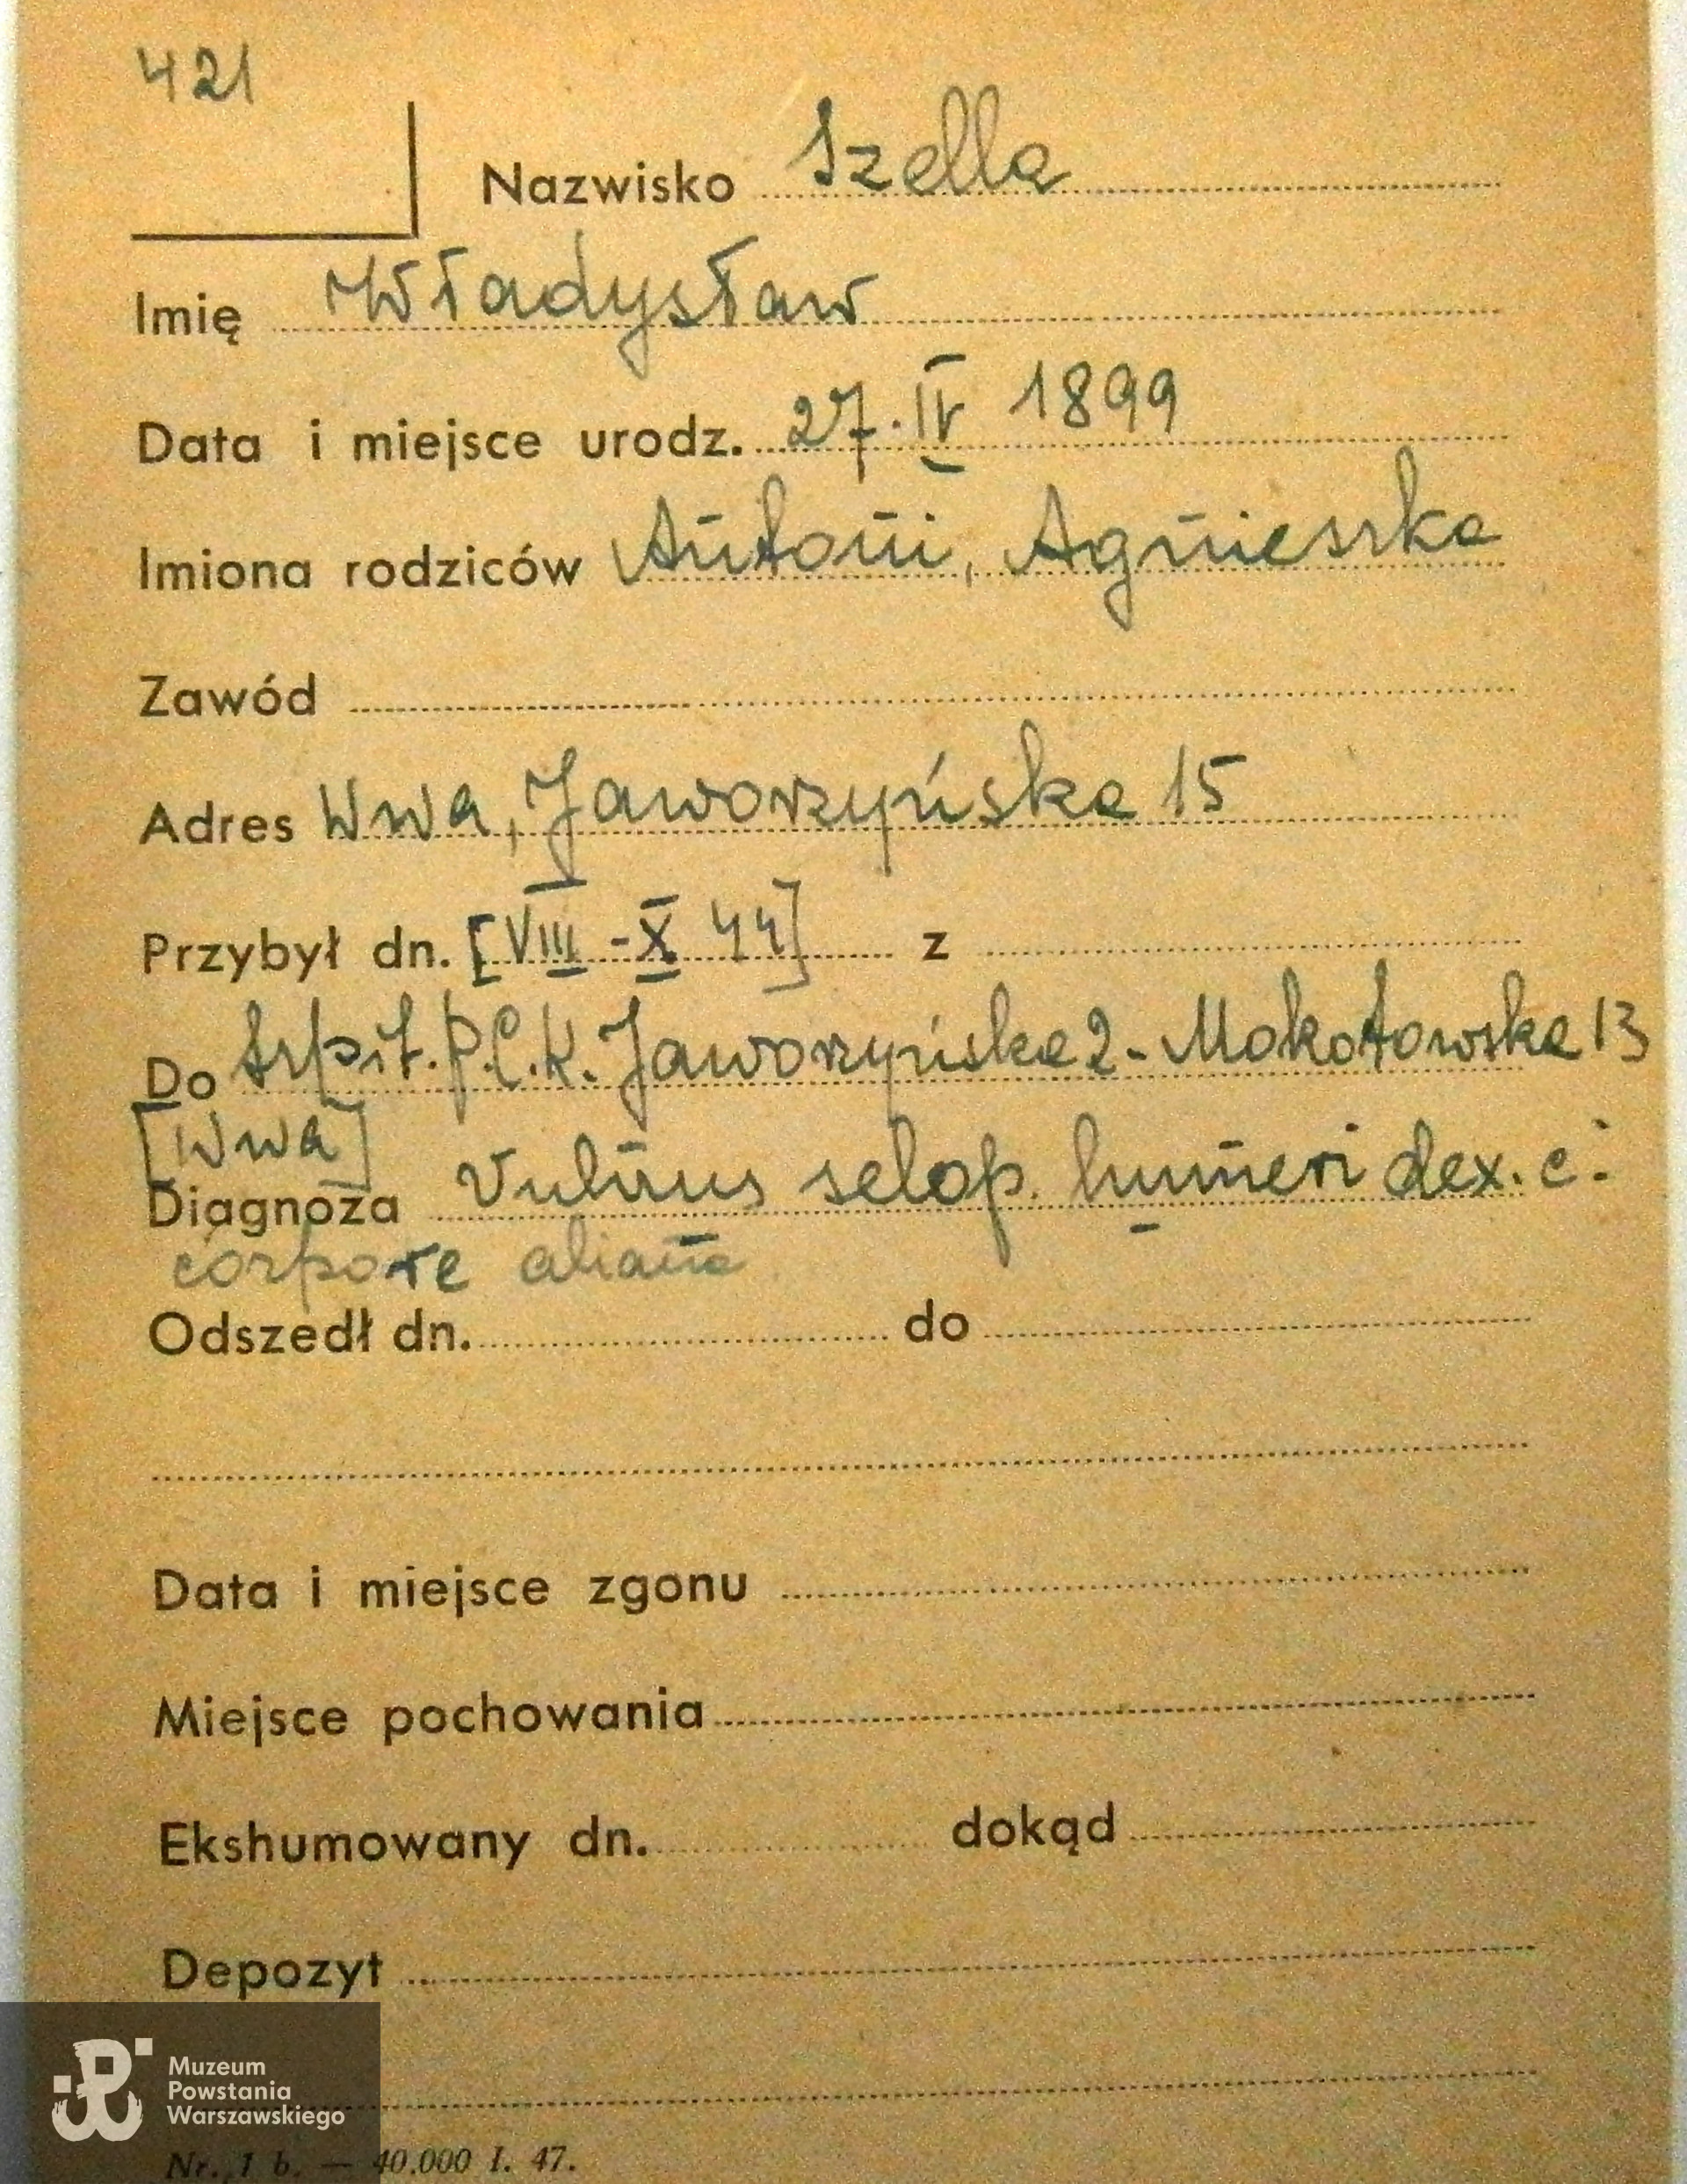 421
Nazwisko Szella
Imię Władysław
Data i miejsce urodz. 27.IV 1899
Imiona rodziców Antoni, Agnieszka
Zawód
Adres Wwa, Jaworzyńska 15
Przybył dn. [VIII-X 44] z
Do Szpit. P.C.K. Jaworzyńska 2 - Mokotowska 13
[Wwa]
Diagnoza Vulnus sclop. humeri dex. c.
corpore aliena
Odszedł dn. do
Data i miejsce zgonu
Miejsce pochowania
Ekshumowany dn. dokąd
Depozyt
Muzeum
Powstania
Warszawskiego
Nr. 1 b. — 40.000 I. 47.